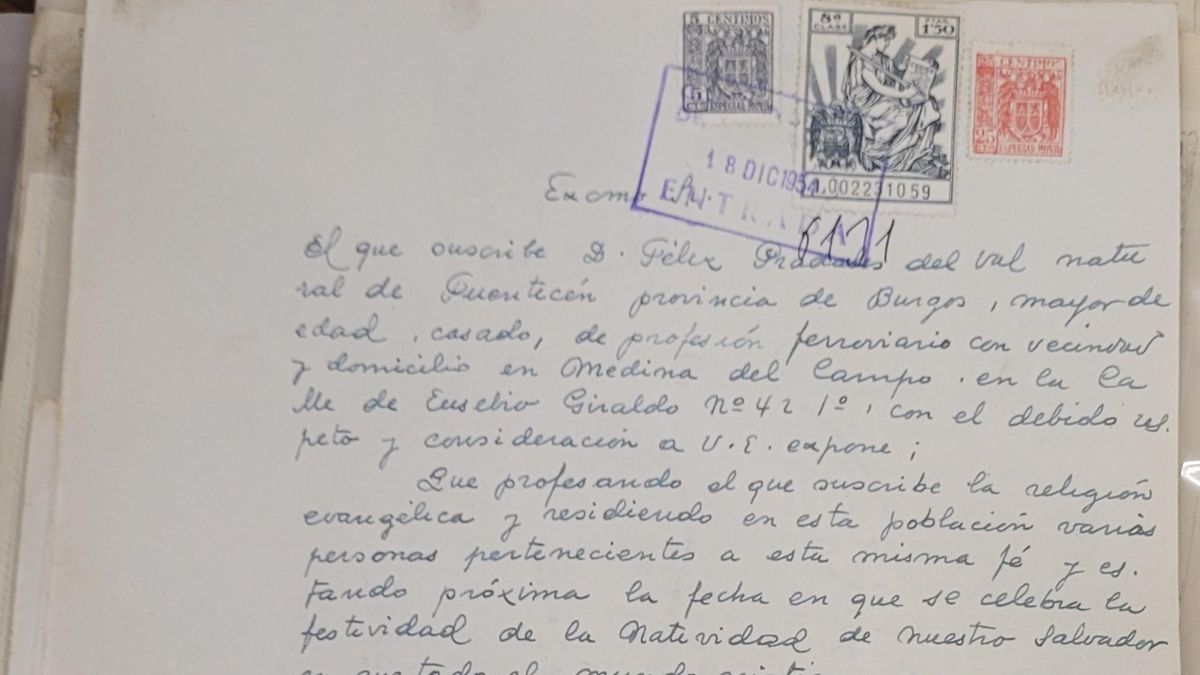 5 CENTIMOS
5 CTS
ESPECIAL MOVIL
8ª CLASE
PTAS. 1'50
1,002231059
25 CENTIMOS
25 CTS
ESPECIAL MOVIL
18 DIC 1954
ENTRADA
Excmo Sr.
El que suscribe D. Félix Pradales del Val natu
ral de Fuentecén provincia de Burgos, mayor de
edad, casado, de profesión ferroviario con vecindad
y domicilio en Medina del Campo. en la Ca
lle de Eusebio Giraldo Nº 42 1º, con el debido res.
peto y consideración a V.E. expone;
Que profesando el que suscribe la religión
evangélica y residiendo en esta población varias
personas pertenecientes a esta misma fé y es.
tando próxima la fecha en que se celebra la
festividad de la Natividad de nuestro Salvador
en que todo el mundo